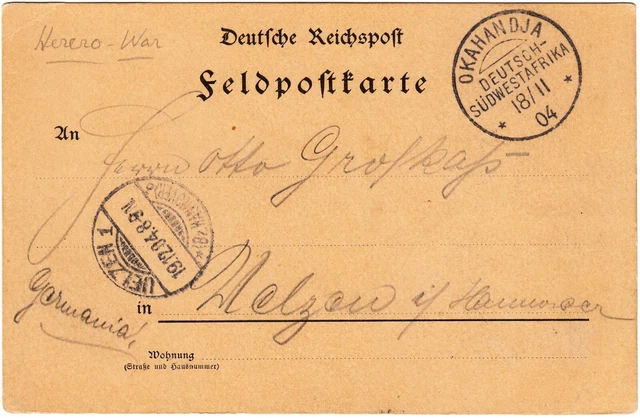 Herero-War
Deutsche Reichspost
Feldpostkarte
OKAHANDJA
DEUTSCH-
SÜDWESTAFRIKA
18/11
04
An
Herrn Otto Großkaß
UELZEN 1
19.12.04. 8-9 N.
*(Bz. HANNOVER)*
Germania,
in
Uelzen i/ Hannover
Wohnung
(Straße und Hausnummer)